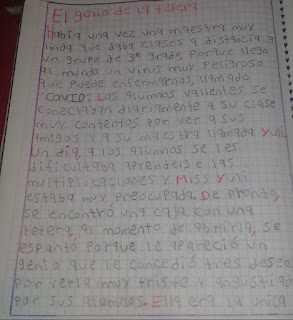 El genio de la tetera
Había una vez una maestra muy
linda que daba clases a distancia a
un grupo de 3º grado, porque llego
al mundo un virus muy peligroso
que puede enfermarnos, llamado
"COVID". Los alumnos valientes se
conectaban diariamente a su clase
muy contentos por ver a sus
amigos y a su maestra llamada Yuli
Un día, a los alumnos se les
dificultaba aprenderse las
multiplicaciones y Miss Yuli
estaba muy preocupada. De pronto,
se encontró una caja con una
tetera, al momento de abrirla, se
espantó porque le apareció un
genio que le concedió tres deseos
por verla muy triste y angustiada
por sus alumnos. Ella era la única